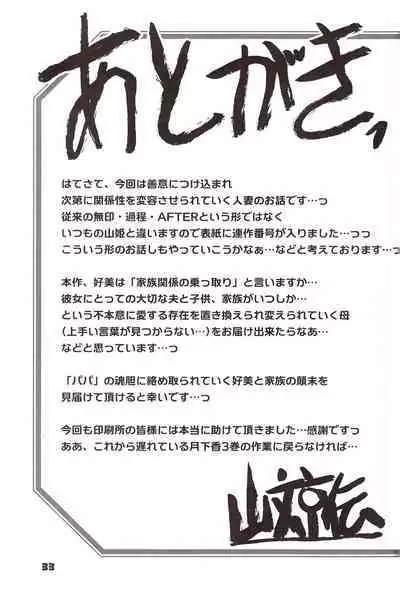 あとがきっ
はてさて、今回は善意につけ込まれ
次第に関係性を変容させられていく人妻のお話です…っ
従来の無印・過程・AFTERという形ではなく
いつもの山姫と違いますので表紙に連作番号が入りました…っっ
こういう形のお話しもやっていこうかなぁ…などと考えております…っ
本作、好美は「家族関係の乗っ取り」と言いますか…
彼女にとっての大切な夫と子供、家族がいつしか…
という不本意に愛する存在を置き換えられ変えられていく母
(上手い言葉が見つからない…)をお届け出来たらなあ…
などと思っています…っ
「パパ」の魂胆に絡め取られていく好美と家族の顛末を
見届けて頂けると幸いです…っ
今回も印刷所の皆様には本当に助けて頂きました…感謝ですっ
ああ、これから遅れている月下香3巻の作業に戻らなければ…
山文京伝
33